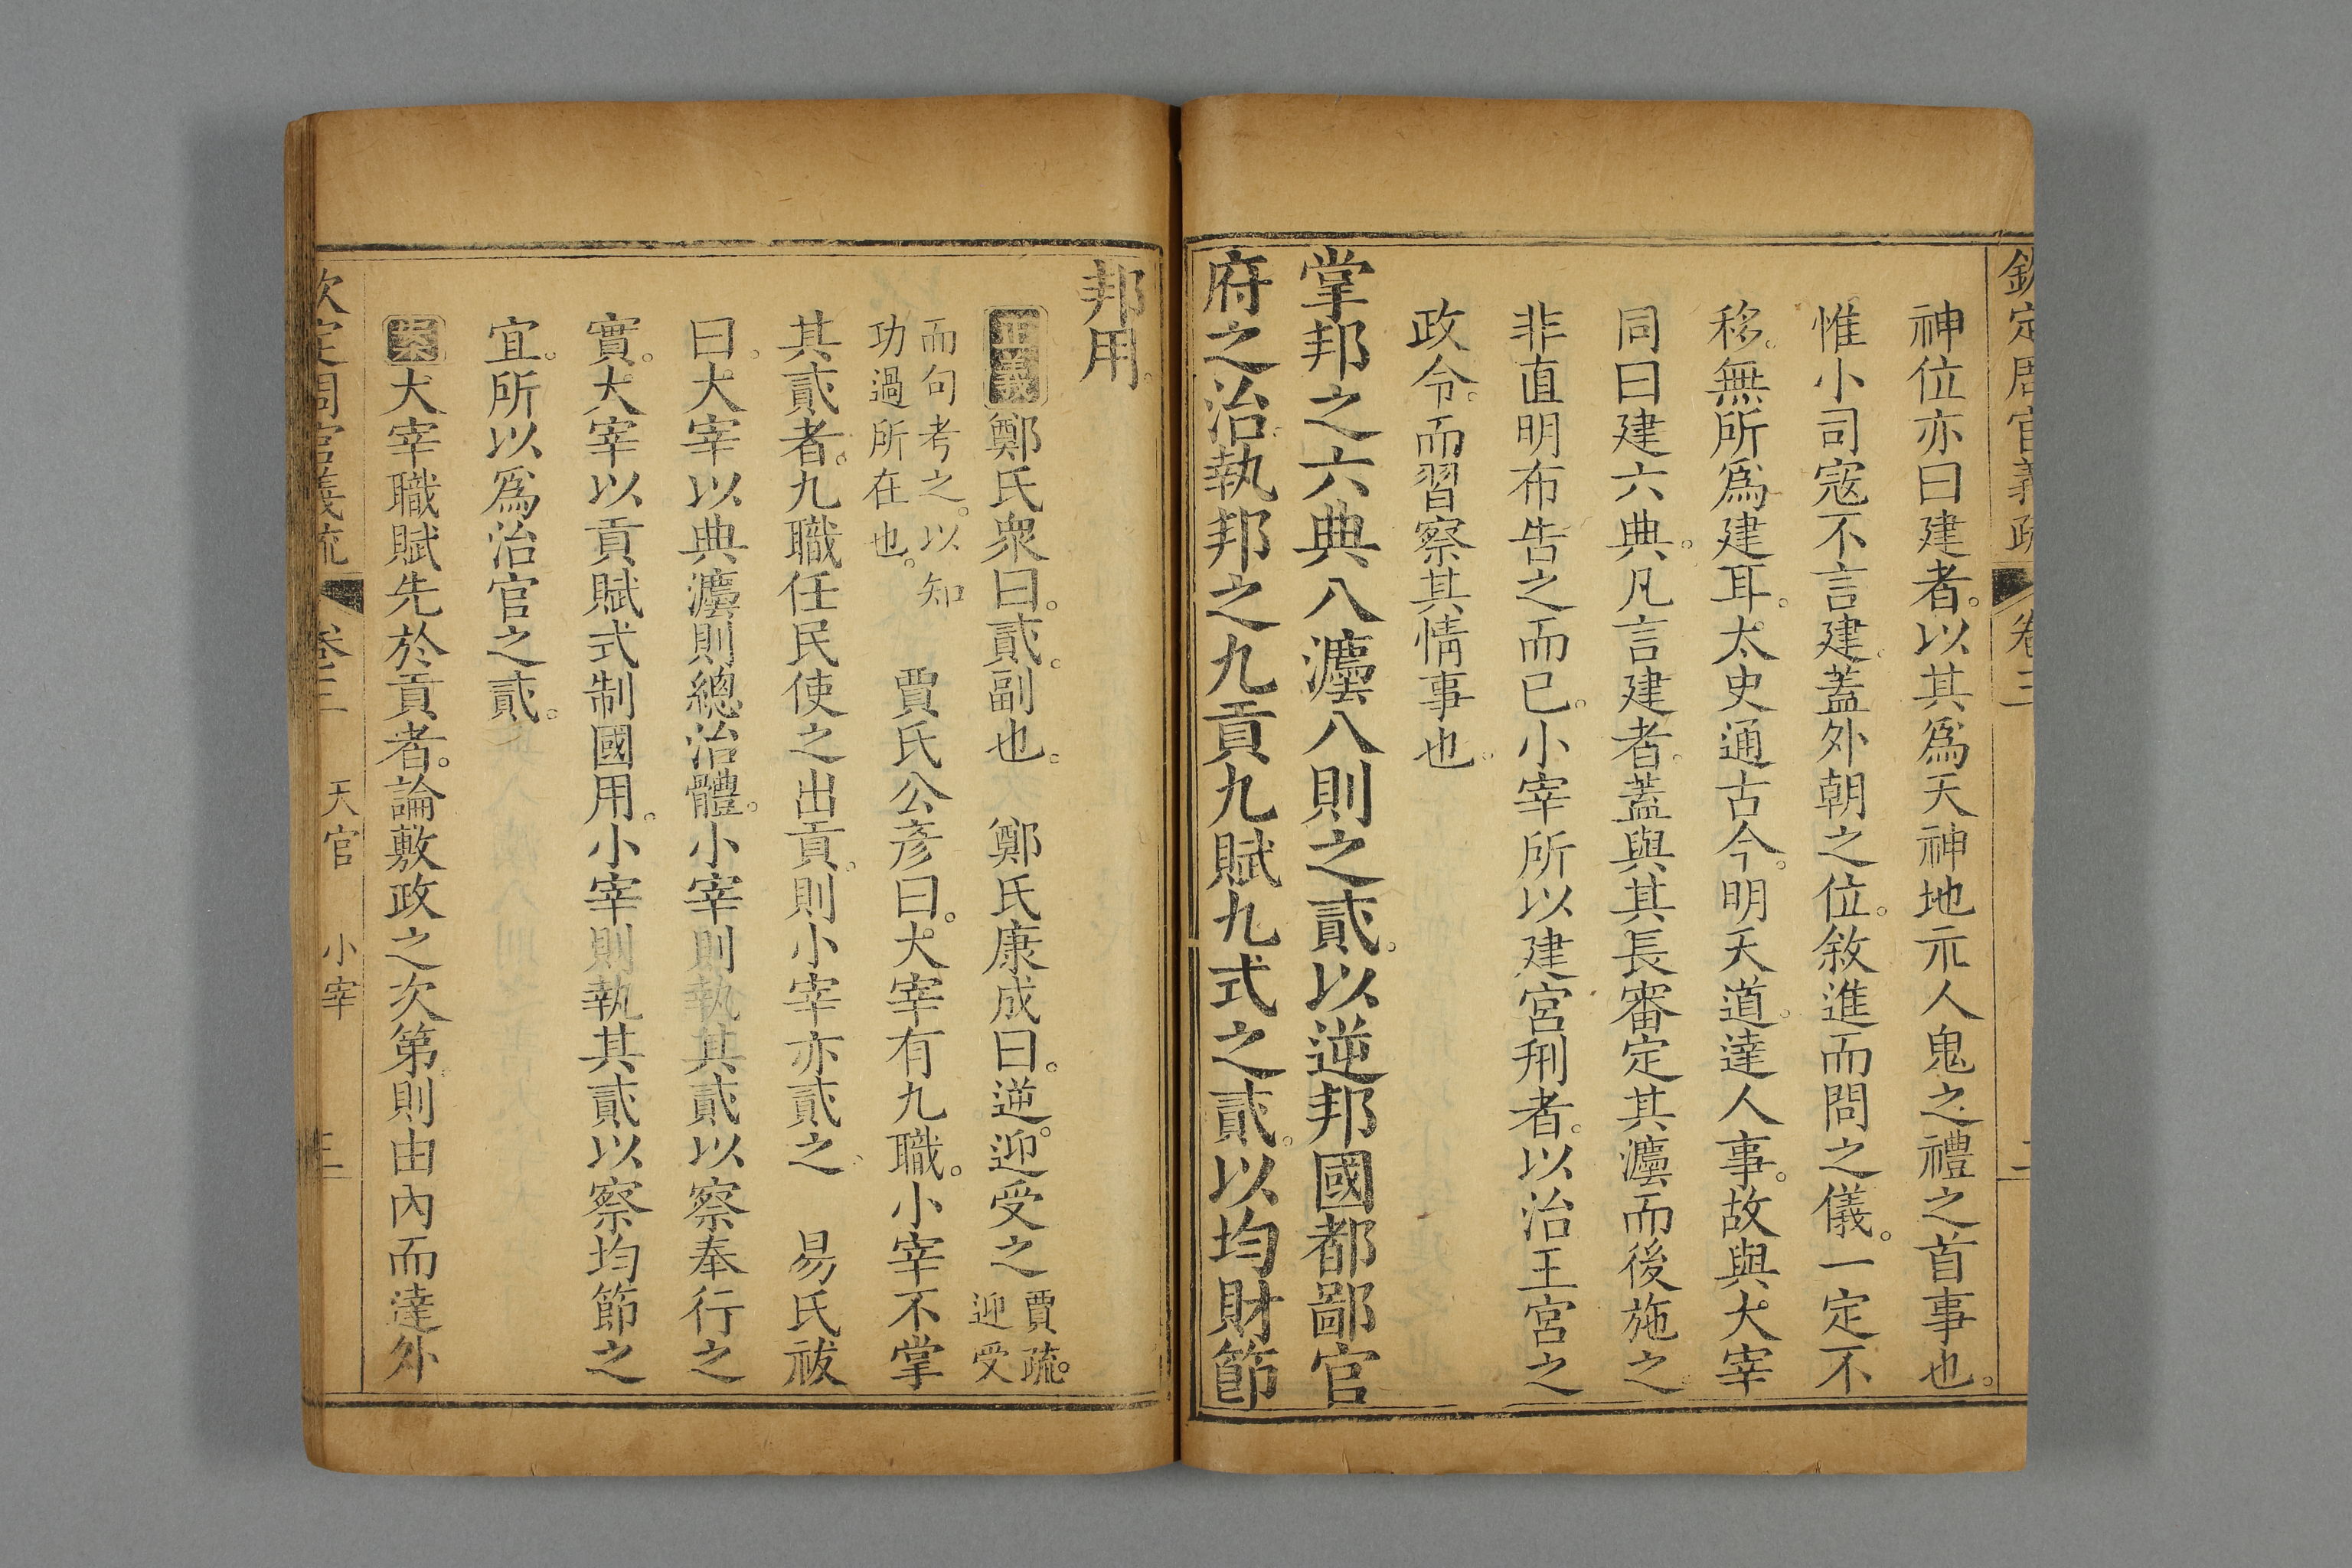 欽定周官義疏 卷三 二
神位亦曰建者。以其爲天神地示人鬼之禮之首事也。
惟小司寇不言建。蓋外朝之位。敘進而問之儀。一定不
移。無所爲建耳。太史通古今。明天道。達人事。故與大宰
同曰建六典。凡言建者。蓋與其長審定其灋而後施之
非直明布告之而已。小宰所以建宮刑者。以治王宮之
政令。而習察其情事也。
掌邦之六典八灋八則之貳。以逆邦國都鄙官
府之治。執邦之九貢九賦九式之貳。以均財節
邦用。
正義鄭氏衆曰。貳。副也。 鄭氏康成曰。逆。迎受之 賈疏。迎受
而句考之。以知功過所在也。 賈氏公彥曰。大宰有九職。小宰不掌
其貳者。九職任民使之出貢。則小宰亦貳之 易氏祓
曰。大宰以典灋則總治體。小宰則執其貳以察奉行之
實。大宰以貢賦式制國用。小宰則執其貳以察均節之
宜。所以爲治官之貳。
案大宰職賦先於貢者。論敷政之次第。則由內而達外
欽定周官義疏 卷三 天官 小宰 三